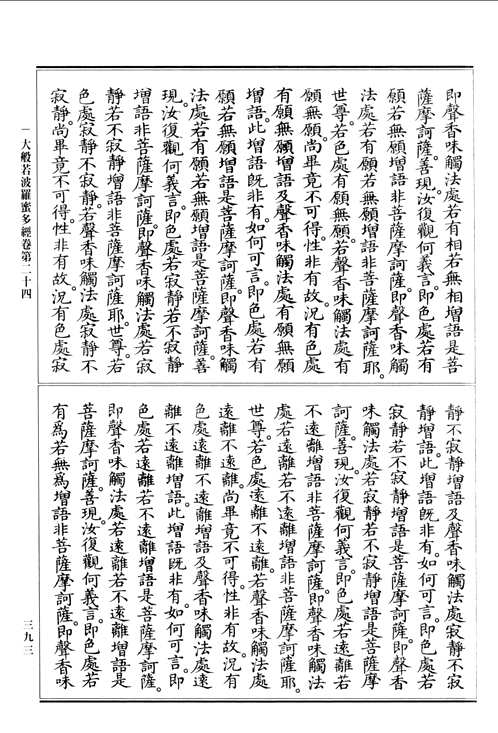 即聲香味觸法處若有相若無相增語是菩
薩摩訶薩善現汝復觀何義言即色處若有
願若無願增語非菩薩摩訶薩即聲香味觸
法處若有願若無願增語非菩薩摩訶薩耶
世尊若色處有願無願若聲香味觸法處有
願無願尚畢竟不可得性非有故況有色處
有願無願增語及聲香味觸法處有願無願
增語此增語既非有如何可言即色處若有
願若無願增語是菩薩摩訶薩即聲香味觸
法處若有願若無願增語是菩薩摩訶薩善
現汝復觀何義言即色處若寂靜若不寂靜
增語非菩薩摩訶薩即聲香味觸法處若寂
靜若不寂靜增語非菩薩摩訶薩耶世尊若
色處寂靜不寂靜若聲香味觸法處寂靜不
寂靜尚畢竟不可得性非有故況有色處寂
靜不寂靜增語及聲香味觸法處寂靜不寂
靜增語此增語既非有如何可言即色處若
寂靜若不寂靜增語是菩薩摩訶薩即聲香
味觸法處若寂靜若不寂靜增語是菩薩摩
訶薩善現汝復觀何義言即色處若遠離若
不遠離增語非菩薩摩訶薩即聲香味觸法
處若遠離若不遠離增語非菩薩摩訶薩耶
世尊若色處遠離不遠離若聲香味觸法處
遠離不遠離尚畢竟不可得性非有故況有
色處遠離不遠離增語及聲香味觸法處遠
離不遠離增語此增語既非有如何可言即
色處若遠離若不遠離增語是菩薩摩訶薩
即聲香味觸法處若遠離若不遠離增語是
菩薩摩訶薩善現汝復觀何義言即色處若
有為若無為增語非菩薩摩訶薩即聲香味
一大般若波羅蜜多經卷第二十四
三九三